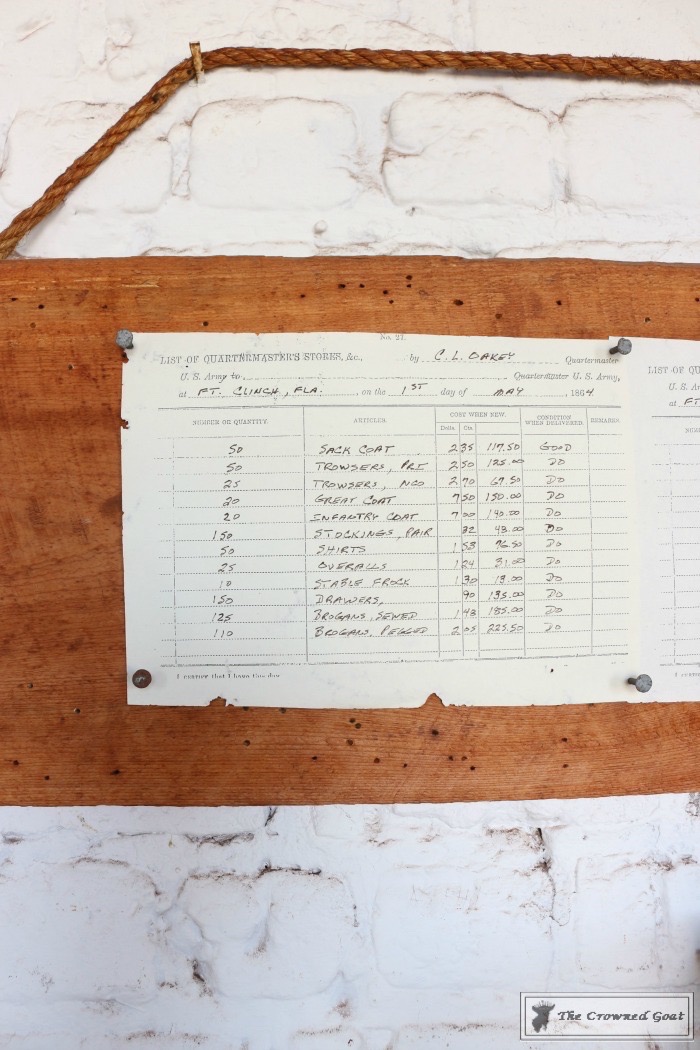 No. 27.
LIST OF QUARTERMASTER'S STORES, &c., by C. L. OAKEY Quartermaster
U. S. Army to Quartermaster U. S. Army,
at FT. CLINCH, FLA. on the 1ST day of MAY , 1864
NUMBER OR QUANTITY. ARTICLES. COST WHEN NEW. CONDITION WHEN DELIVERED. REMARKS.
Dolls. Cts.
50 SACK COAT 2 35 117.50 GOOD
50 TROWSERS, PRI 2 50 125.00 DO
25 TROWSERS, NCO 2 70 67.50 DO
20 GREAT COAT 7 50 150.00 DO
20 INFANTRY COAT 7 00 140.00 DO
150 STOCKINGS, PAIR 32 48.00 DO
50 SHIRTS 1 53 76.50 DO
25 OVERALLS 1 24 31.00 DO
10 STABLE FROCK 1 30 13.00 DO
150 DRAWERS, 90 135.00 DO
125 BROGANS, SEWED 1 48 185.00 DO
110 BROGANS, PEGGED 2 05 225.50 DO
I CERTIFY that I have
LIST OF QU
U. S. A
at FT
NUMB
I CERT
The Crowned Goat